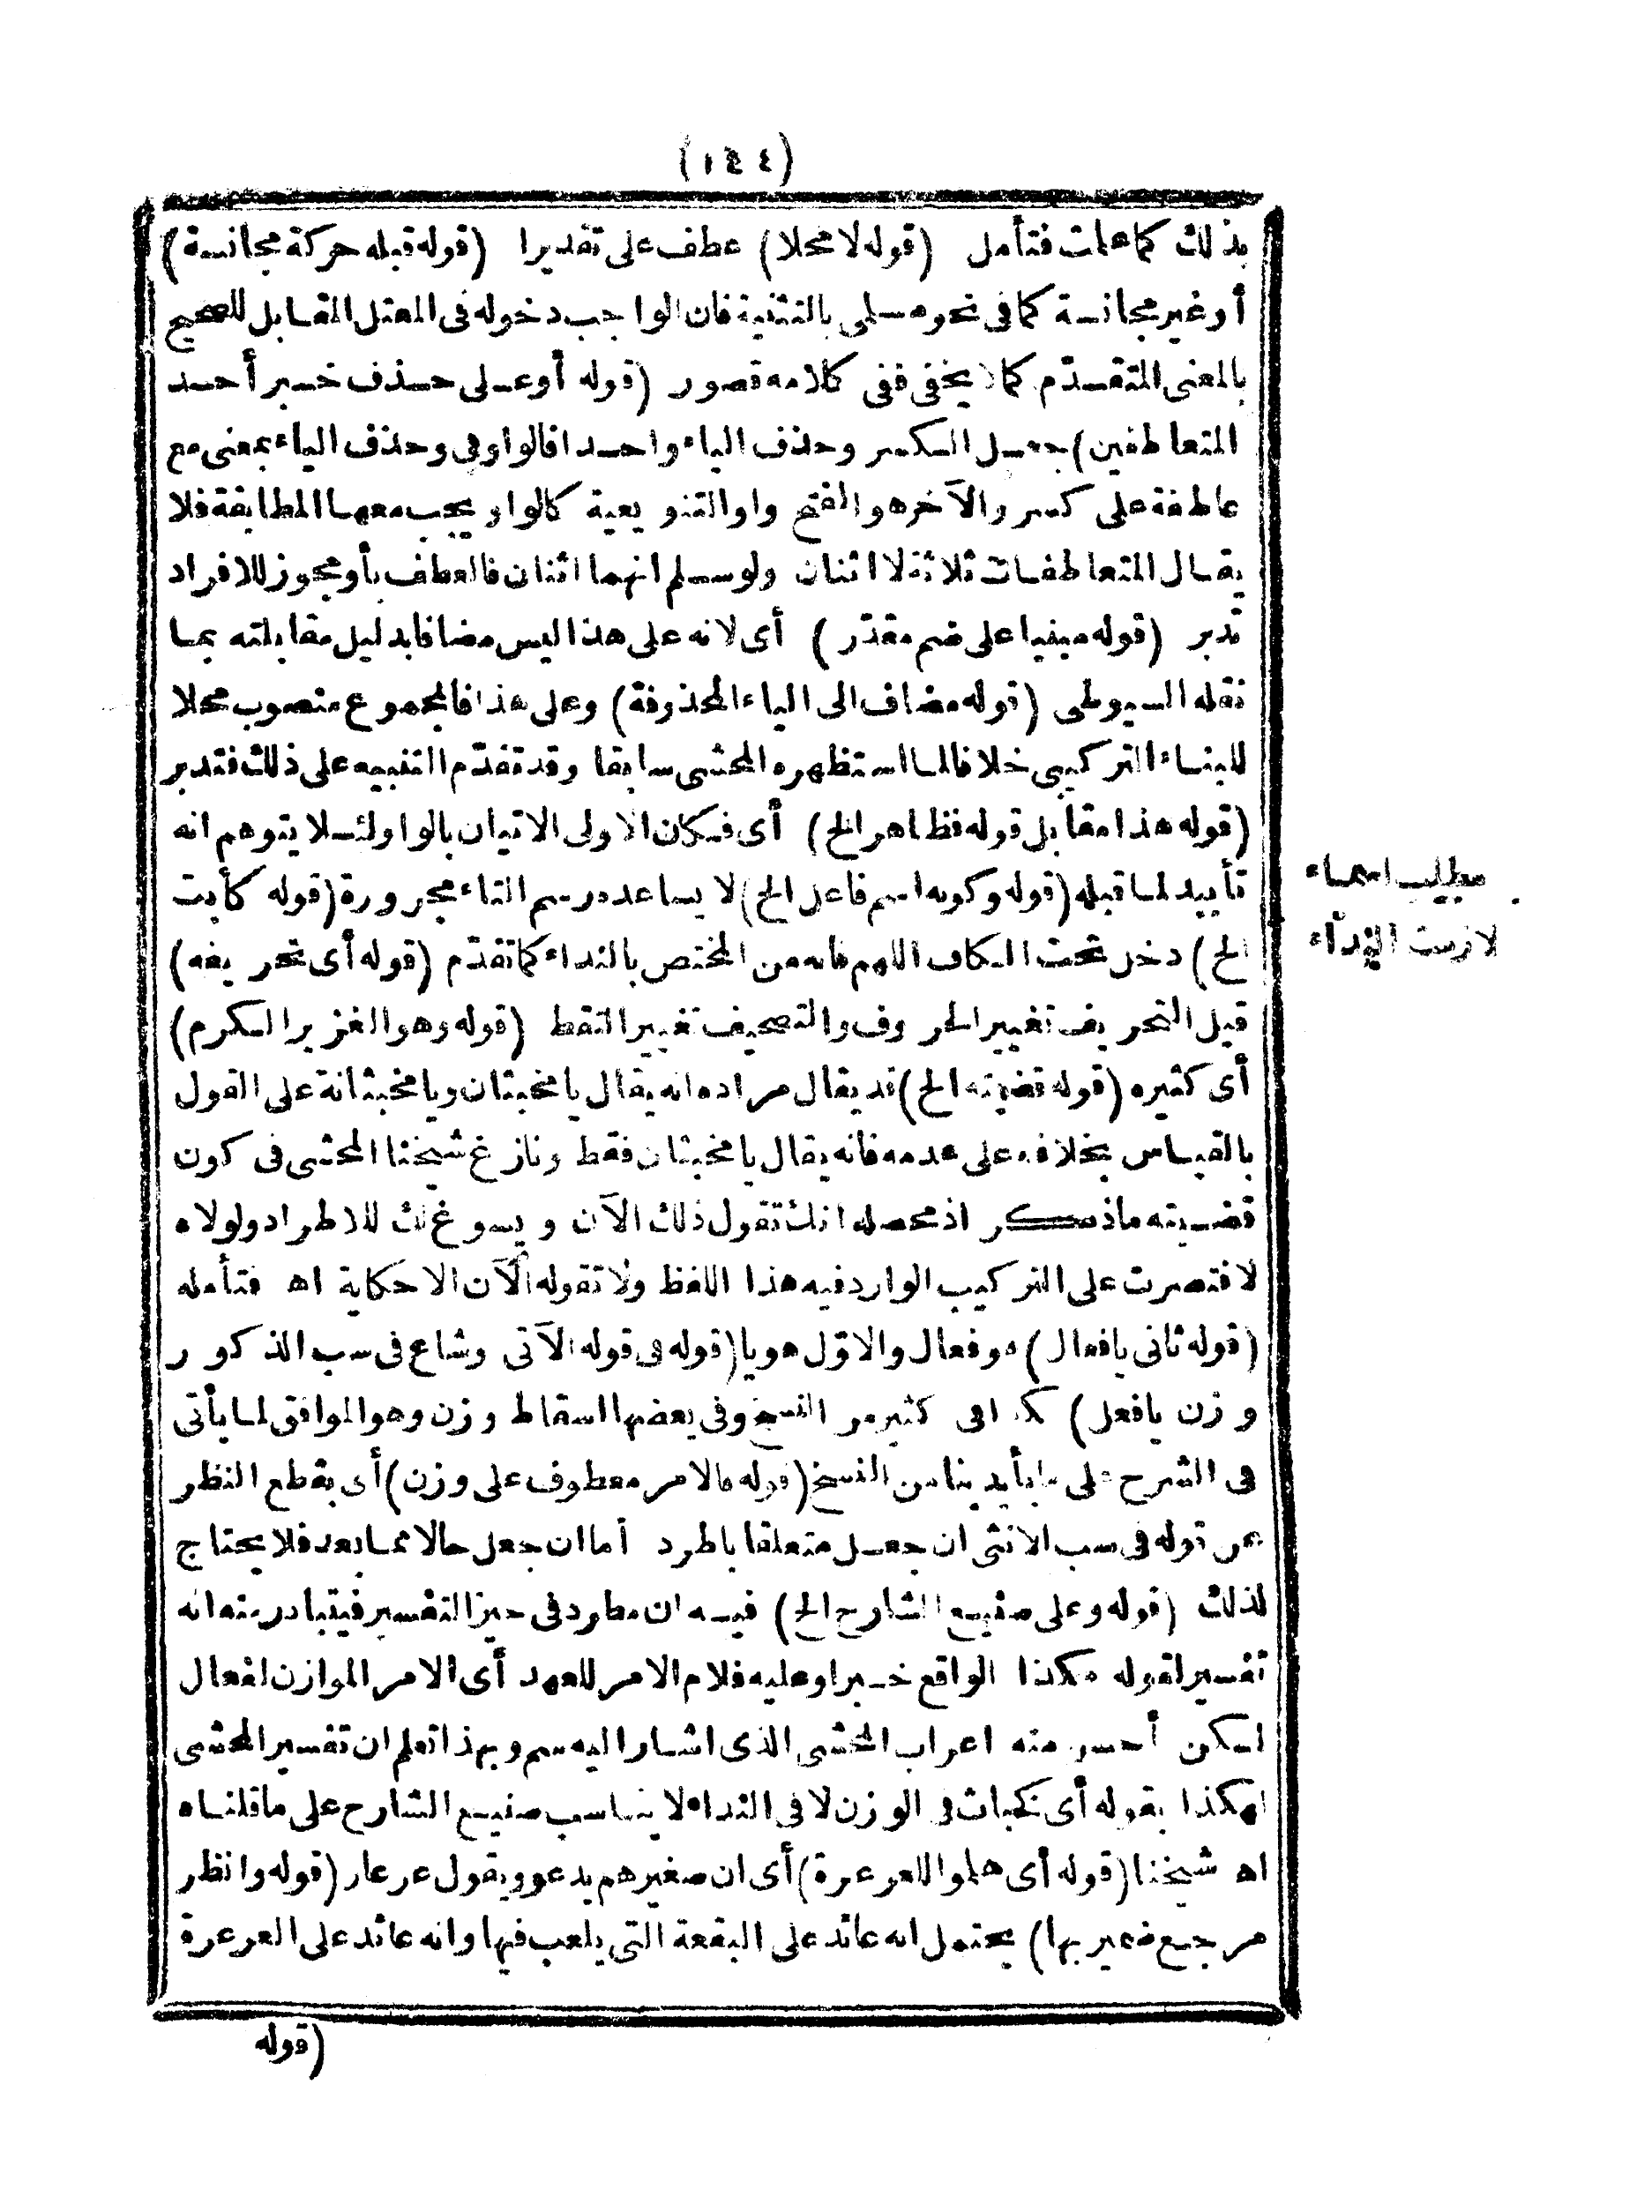 (١٤٤)
بذلك كما علمت فتأمل (قوله لا محلا) عطف على تقديرا (قوله قبله حركة مجانسة)
أو غير مجانسة كما فى نحو مسلمى بالتثنية فان الواجب دخوله فى المعتل المقابل للصحيح
بالمعنى المتقدّم كما لا يخفى ففى كلامه قصور (قوله أو على حذف خبر أحد
المتعاطفين) جعل الكسر وحذف الياء واحدا فالواو فى وحذف الياء بمعنى مع
عاطفة على كسر والآخر هو الفتح واو التنويعية كالواو يجب معها المطابقة فلا
يقال المتعاطفات ثلاثة لا اثنان ولو سلم انهما اثنان فالعطف بأو مجوز للافراد
تدبر (قوله مبنيا على ضم مقدّر) أى لانه على هذا ليس مضافا بدليل مقابلته بما
نقله السيوطى (قوله مضاف الى الياء المحذوفة) وعلى هذا فالمجموع منصوب محلا
للبناء التركيبى خلافا لما استظهره المحشى سابقا وقد تقدّم التنبيه على ذلك فتدبر
(قوله هذا مقابل قوله فظاهر الخ) أى فكان الاولى الاتيان بالواو لئلا يتوهم انه
تأييد لما قبله (قوله وكونه اسم فاعل الخ) لا يساعده رسم التاء مجرورة (قوله كأبت
الخ) دخل تحت الكاف اللهم فانه من المختص بالنداء كما تقدّم (قوله أى تحريفه)
قيل التحريف تغيير الحروف والتصحيف تغيير النقط (قوله وهو الغزير الكرم)
أى كثيره (قوله قضيته الخ) قد يقال مراده انه يقال يا مخبثان ويا مخبثانة على القول
بالقياس بخلافه على عدمه فانه يقال يا مخبثان فقط ونازع شيخنا المحشى فى كون
قضيته ما ذكر اذ محصله انك تقول ذلك الآن ويسوغ لك للاطراد ولولاه
لاقتصرت على التركيب الوارد فيه هذا اللفظ ولا تقوله الآن الا حكاية اه فتأمله
(قوله ثانى يا فعال) هو فعال والاوّل هو يا (قوله فى قوله الآتى وشاع فى سب الذكور
وزن يا فعل) كذا فى كثير من النسخ وفى بعضها اسقاط وزن وهو الموافق لما يأتى
فى الشرح على ما بأيدينا من النسخ (قوله فالامر معطوف على وزن) أى بقطع النظر
عن قوله فى سب الانثى ان جعل متعلقا باطرد أما ان جعل حالا مما بعد فلا يحتاج
لذلك (قوله وعلى صنيع الشارح الخ) فيه ان مطرد فى حيز التفسير فيتبادر منه انه
تفسير لقوله هكذا الواقع خبرا وعليه فلام الامر للعهد أى الامر الموازن لفعال
لكن أحسن منه اعراب المحشى الذى اشار اليه سم وبهذا تعلم ان تفسير المحشى
لهكذا بقوله أى كخباث فى الوزن لا فى النداء لا يناسب صنيع الشارح على ما قلناه
اه شيخنا (قوله أى هلموا للعرعرة) أى ان صغيرهم يدعو ويقول عرعار (قوله وانظر
مرجع ضمير بها) يحتمل انه عائد على البقعة التى يلعب فيها وانه عائد على العرعرة
(قوله
مطلب اسماء
لازمت النداء